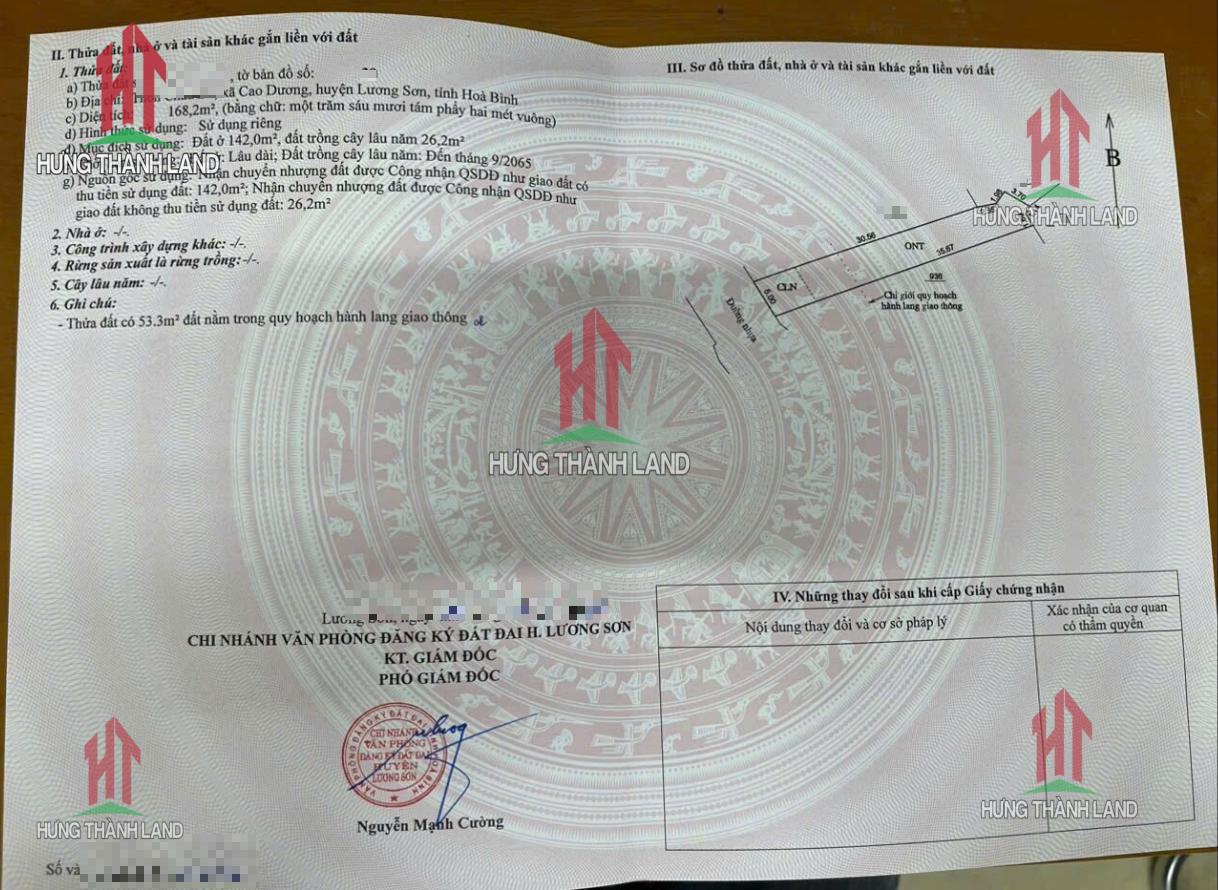 II. Thửa đất, nhà ở và tài sản khác gắn liền với đất
1. Thửa đất:
a) Thửa đất , tờ bản đồ số:
b) Địa chỉ: xã Cao Dương, huyện Lương Sơn, tỉnh Hoà Bình
c) Diện tích: 168,2m², (bằng chữ: một trăm sáu mươi tám phẩy hai mét vuông)
d) Hình thức sử dụng: Sử dụng riêng
đ) Mục đích sử dụng: Đất ở 142,0m², đất trồng cây lâu năm 26,2m²
Lâu dài; Đất trồng cây lâu năm: Đến tháng 9/2065
g) Nguồn gốc sử dụng: Nhận chuyển nhượng đất được Công nhận QSDĐ như giao đất có
thu tiền sử dụng đất: 142,0m²; Nhận chuyển nhượng đất được Công nhận QSDĐ như
giao đất không thu tiền sử dụng đất: 26,2m²
2. Nhà ở: -/-.
3. Công trình xây dựng khác: -/-.
4. Rừng sản xuất là rừng trồng: -/-.
5. Cây lâu năm: -/-.
6. Ghi chú:
- Thửa đất có 53.3m² đất nằm trong quy hoạch hành lang giao thông
Lương Sơn, ngày
CHI NHÁNH VĂN PHÒNG ĐĂNG KÝ ĐẤT ĐAI H. LƯƠNG SƠN
KT. GIÁM ĐỐC
PHÓ GIÁM ĐỐC
VĂN PHÒNG ĐĂNG KÝ ĐẤT ĐAI TỈNH HOÀ BÌNH
CHI NHÁNH
VĂN PHÒNG
ĐĂNG KÝ ĐẤT ĐAI
HUYỆN
LƯƠNG SƠN
Nguyễn Mạnh Cường
Số và
III. Sơ đồ thửa đất, nhà ở và tài sản khác gắn liền với đất
B
3.70
1.98
30.56
ONT
35.67
CLN
5.00
936
Chỉ giới quy hoạch
hành lang giao thông
Đường nhựa
IV. Những thay đổi sau khi cấp Giấy chứng nhận
Nội dung thay đổi và cơ sở pháp lý
Xác nhận của cơ quan
có thẩm quyền
HƯNG THÀNH LAND
HƯNG THÀNH LAND
HƯNG THÀNH LAND
HƯNG THÀNH LAND
HƯNG THÀNH LAND